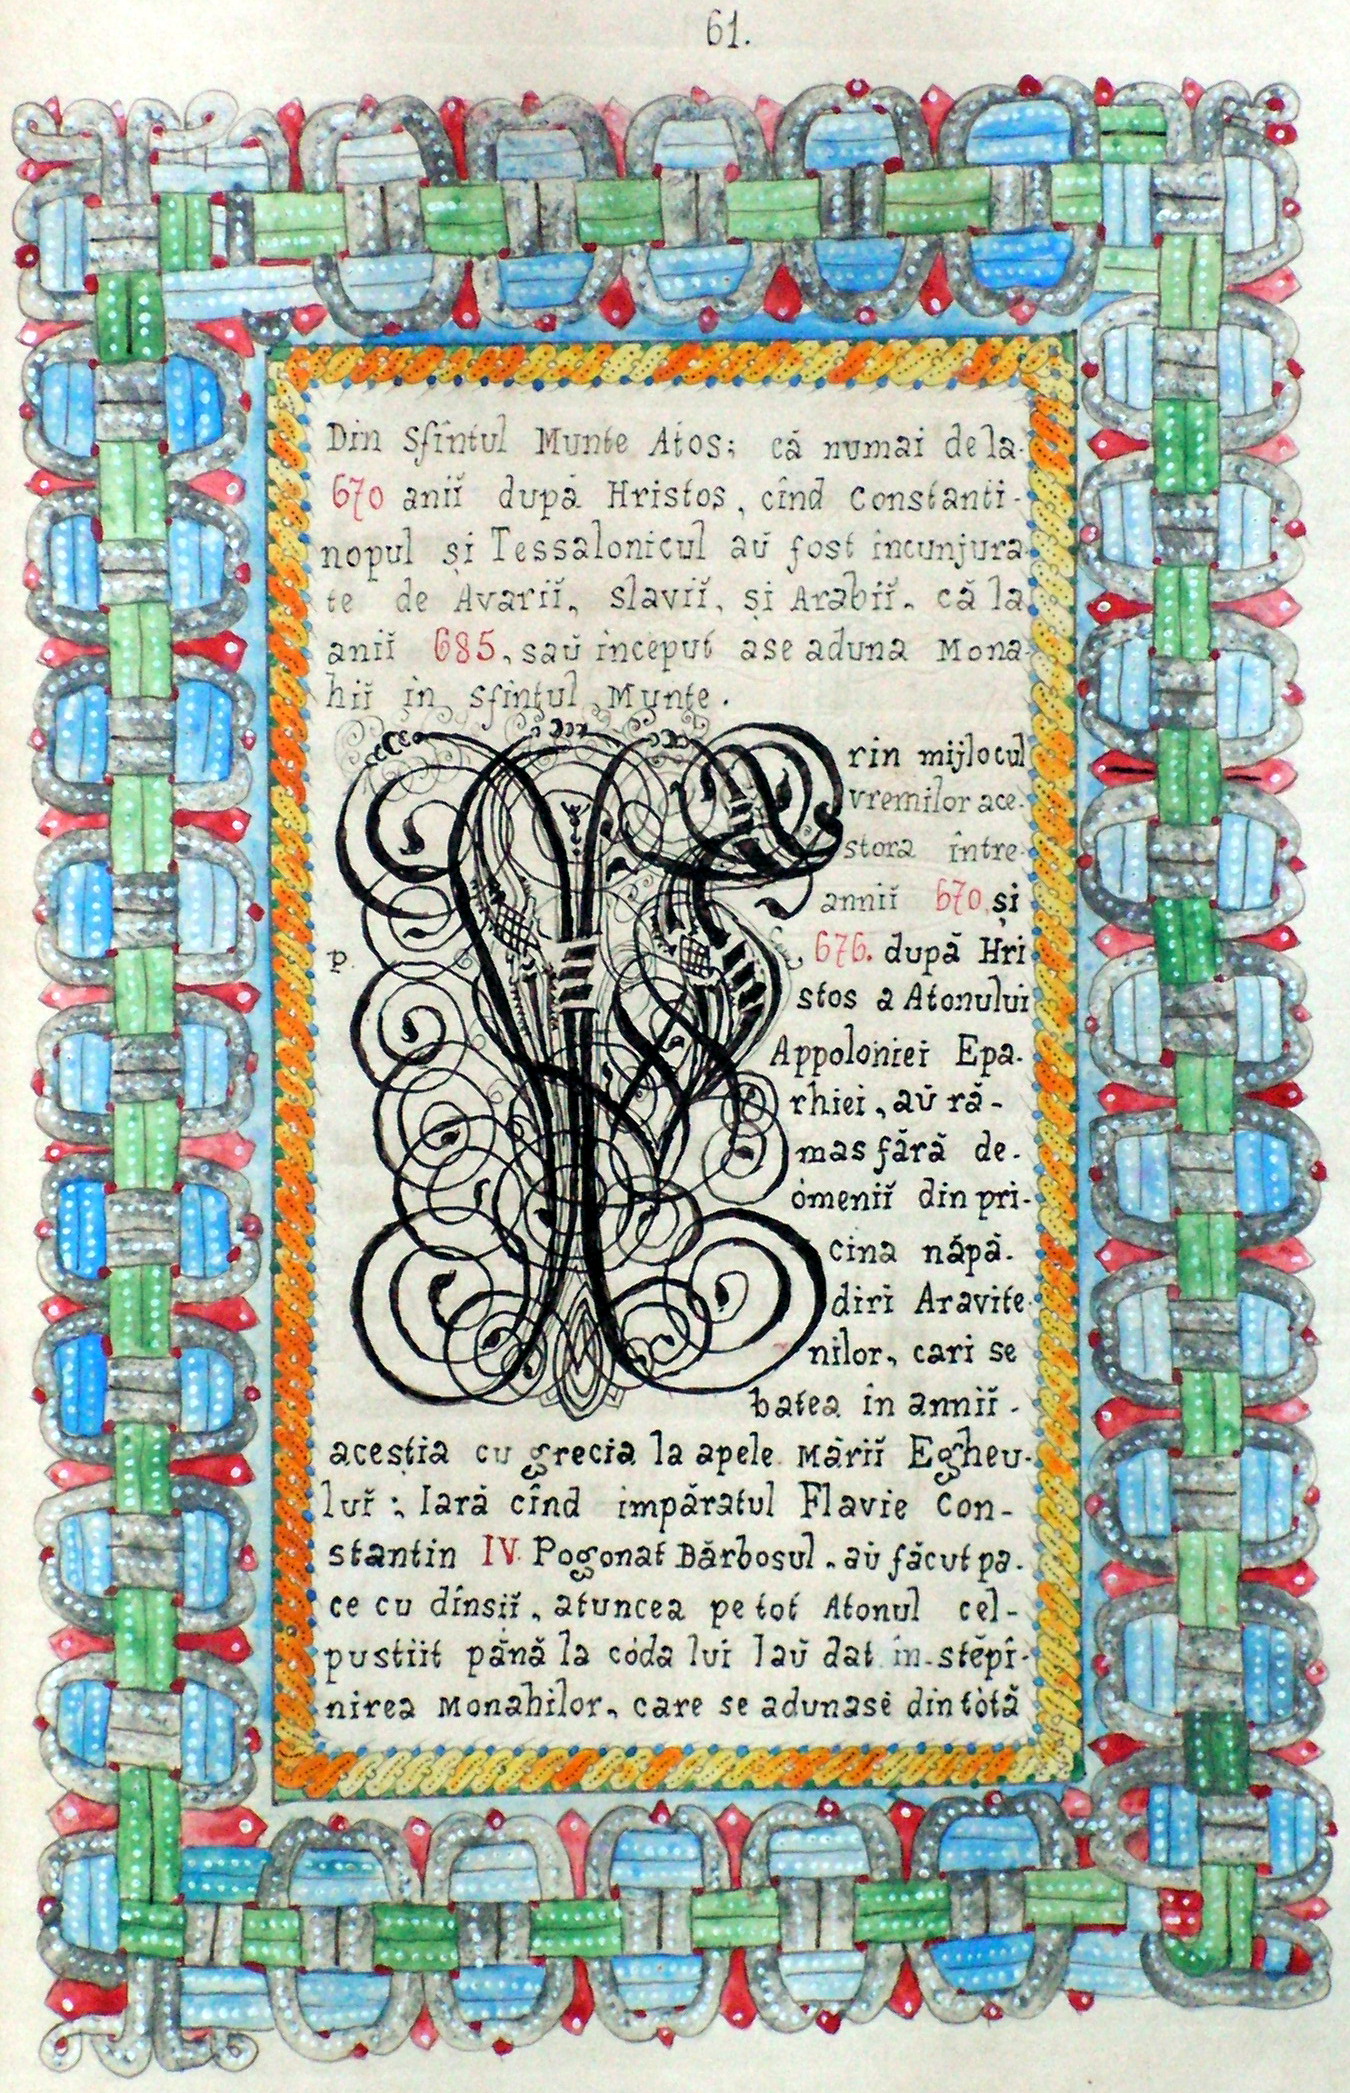 61.
Din Sfîntul Munte Atos; că numai de la
670 aniĭ după Hristos, cînd Constanti-
nopul și Tessalonicul aŭ fost încunjura
te de Avariĭ, slaviĭ, și Arabiĭ, că la
aniĭ 685, saŭ început ase aduna Mona-
hiĭ in sfintul Munte.
P rin mijlocul
vremilor ace-
stora între
anniĭ 670 și
p. 676. după Hri
stos a Atonului
Appoloniei Epa-
rhiei, aŭ ră-
mas fără de-
ómeniĭ din pri-
cina năpă-
diri Aravite
nilor, cari se
batea în anniĭ -
acestia cu grecia la apele Măriĭ Egheu-
luĭ; Iară cînd impăratul Flavie Con-
stantin IV. Pogonat Bărbosul, aŭ făcut pa-
ce cu dînsiĭ, atuncea pe tot Atonul cel-
pustiit până la códa lui laŭ dat in-stĕpî-
nirea Monahilor, care se adunase din tótă